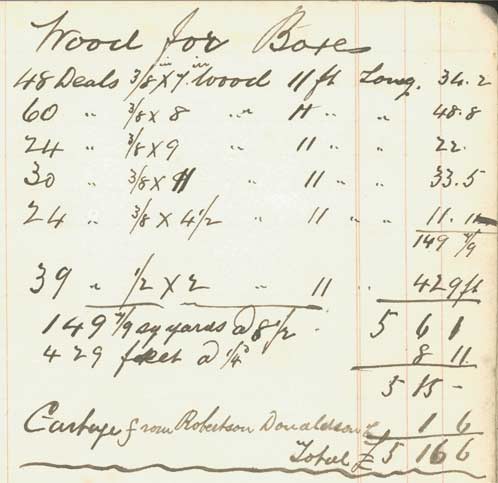 Wood for Boxes
48 Deals 3/8 x 7 in in Wood 11 ft Long. 34.2
60 " 3/8 x 8 " 11 " " 48.8
24 " 3/8 x 9 " 11 " " 22.
30 " 3/8 x 11 " 11 " " 33.5
24 " 3/8 x 4 1/2 " 11 " " 11. 11
149 7/9
39 " 1/2 x 2 " 11 " 429 ft
149 7/9 sq yards @ 8 1/2 5 6 1
429 feet @ 1/4d 8 11
5 15 -
Cartage from Robertson Donaldson 1 6
Total £ 5 16 6